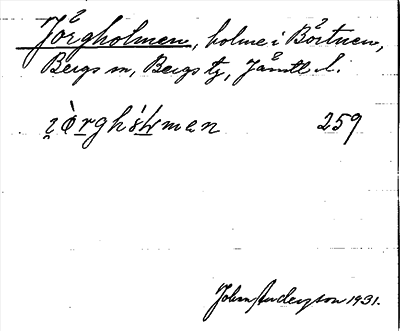 Jörgholmen, holme i Börtnen,
Bergs sn, Bergs tg, Jämtl. l.
259
John Anderson 1931.